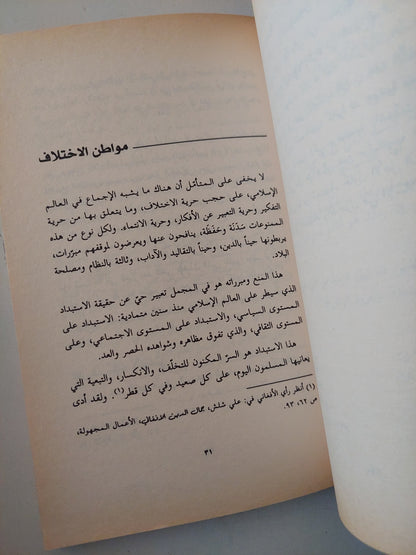 مواطن الاختلاف
لا يخفى على المتأمّل أن هناك ما يشبه الإجماع في العالم
الإسلامي، على حجب حرية الاختلاف، وما يتعلق بها من حرية
التفكير وحرية التعبير عن الأفكار، وحرية الانتماء. ولكل نوع من هذه
الممنوعات سَدَنَة وحَفَظَة، ينافحون عنها ويعرضون لموقفهم مبرّرات،
يربطونها حيناً بالدين، وحيناً بالتقاليد والآداب، وثالثة بالنظام ومصلحة
البلاد.
هذا المنع ومبرراته هو في المجمل تعبير حيّ عن حقيقة الاستبداد
الذي سيطر على العالم الإسلامي منذ سنين متمادية: الاستبداد على
المستوى السياسي، والاستبداد على المستوى الاجتماعي، وعلى
المستوى الثقافي، والذي تفوق مظاهره وشواهده الحصر والعد.
هذا الاستبداد هو السرّ المكنون للتخلّف، والانكسار، والتبعية التي
يعانيها المسلمون اليوم، على كل صعيد وفي كل قطر(١). ولقد أدى
(١) أنظر رأي الأفغاني في: علي شلش، جمال الدين الافغاني، الأعمال المجهولة،
ص ٦٢، ٩٣.
٣١